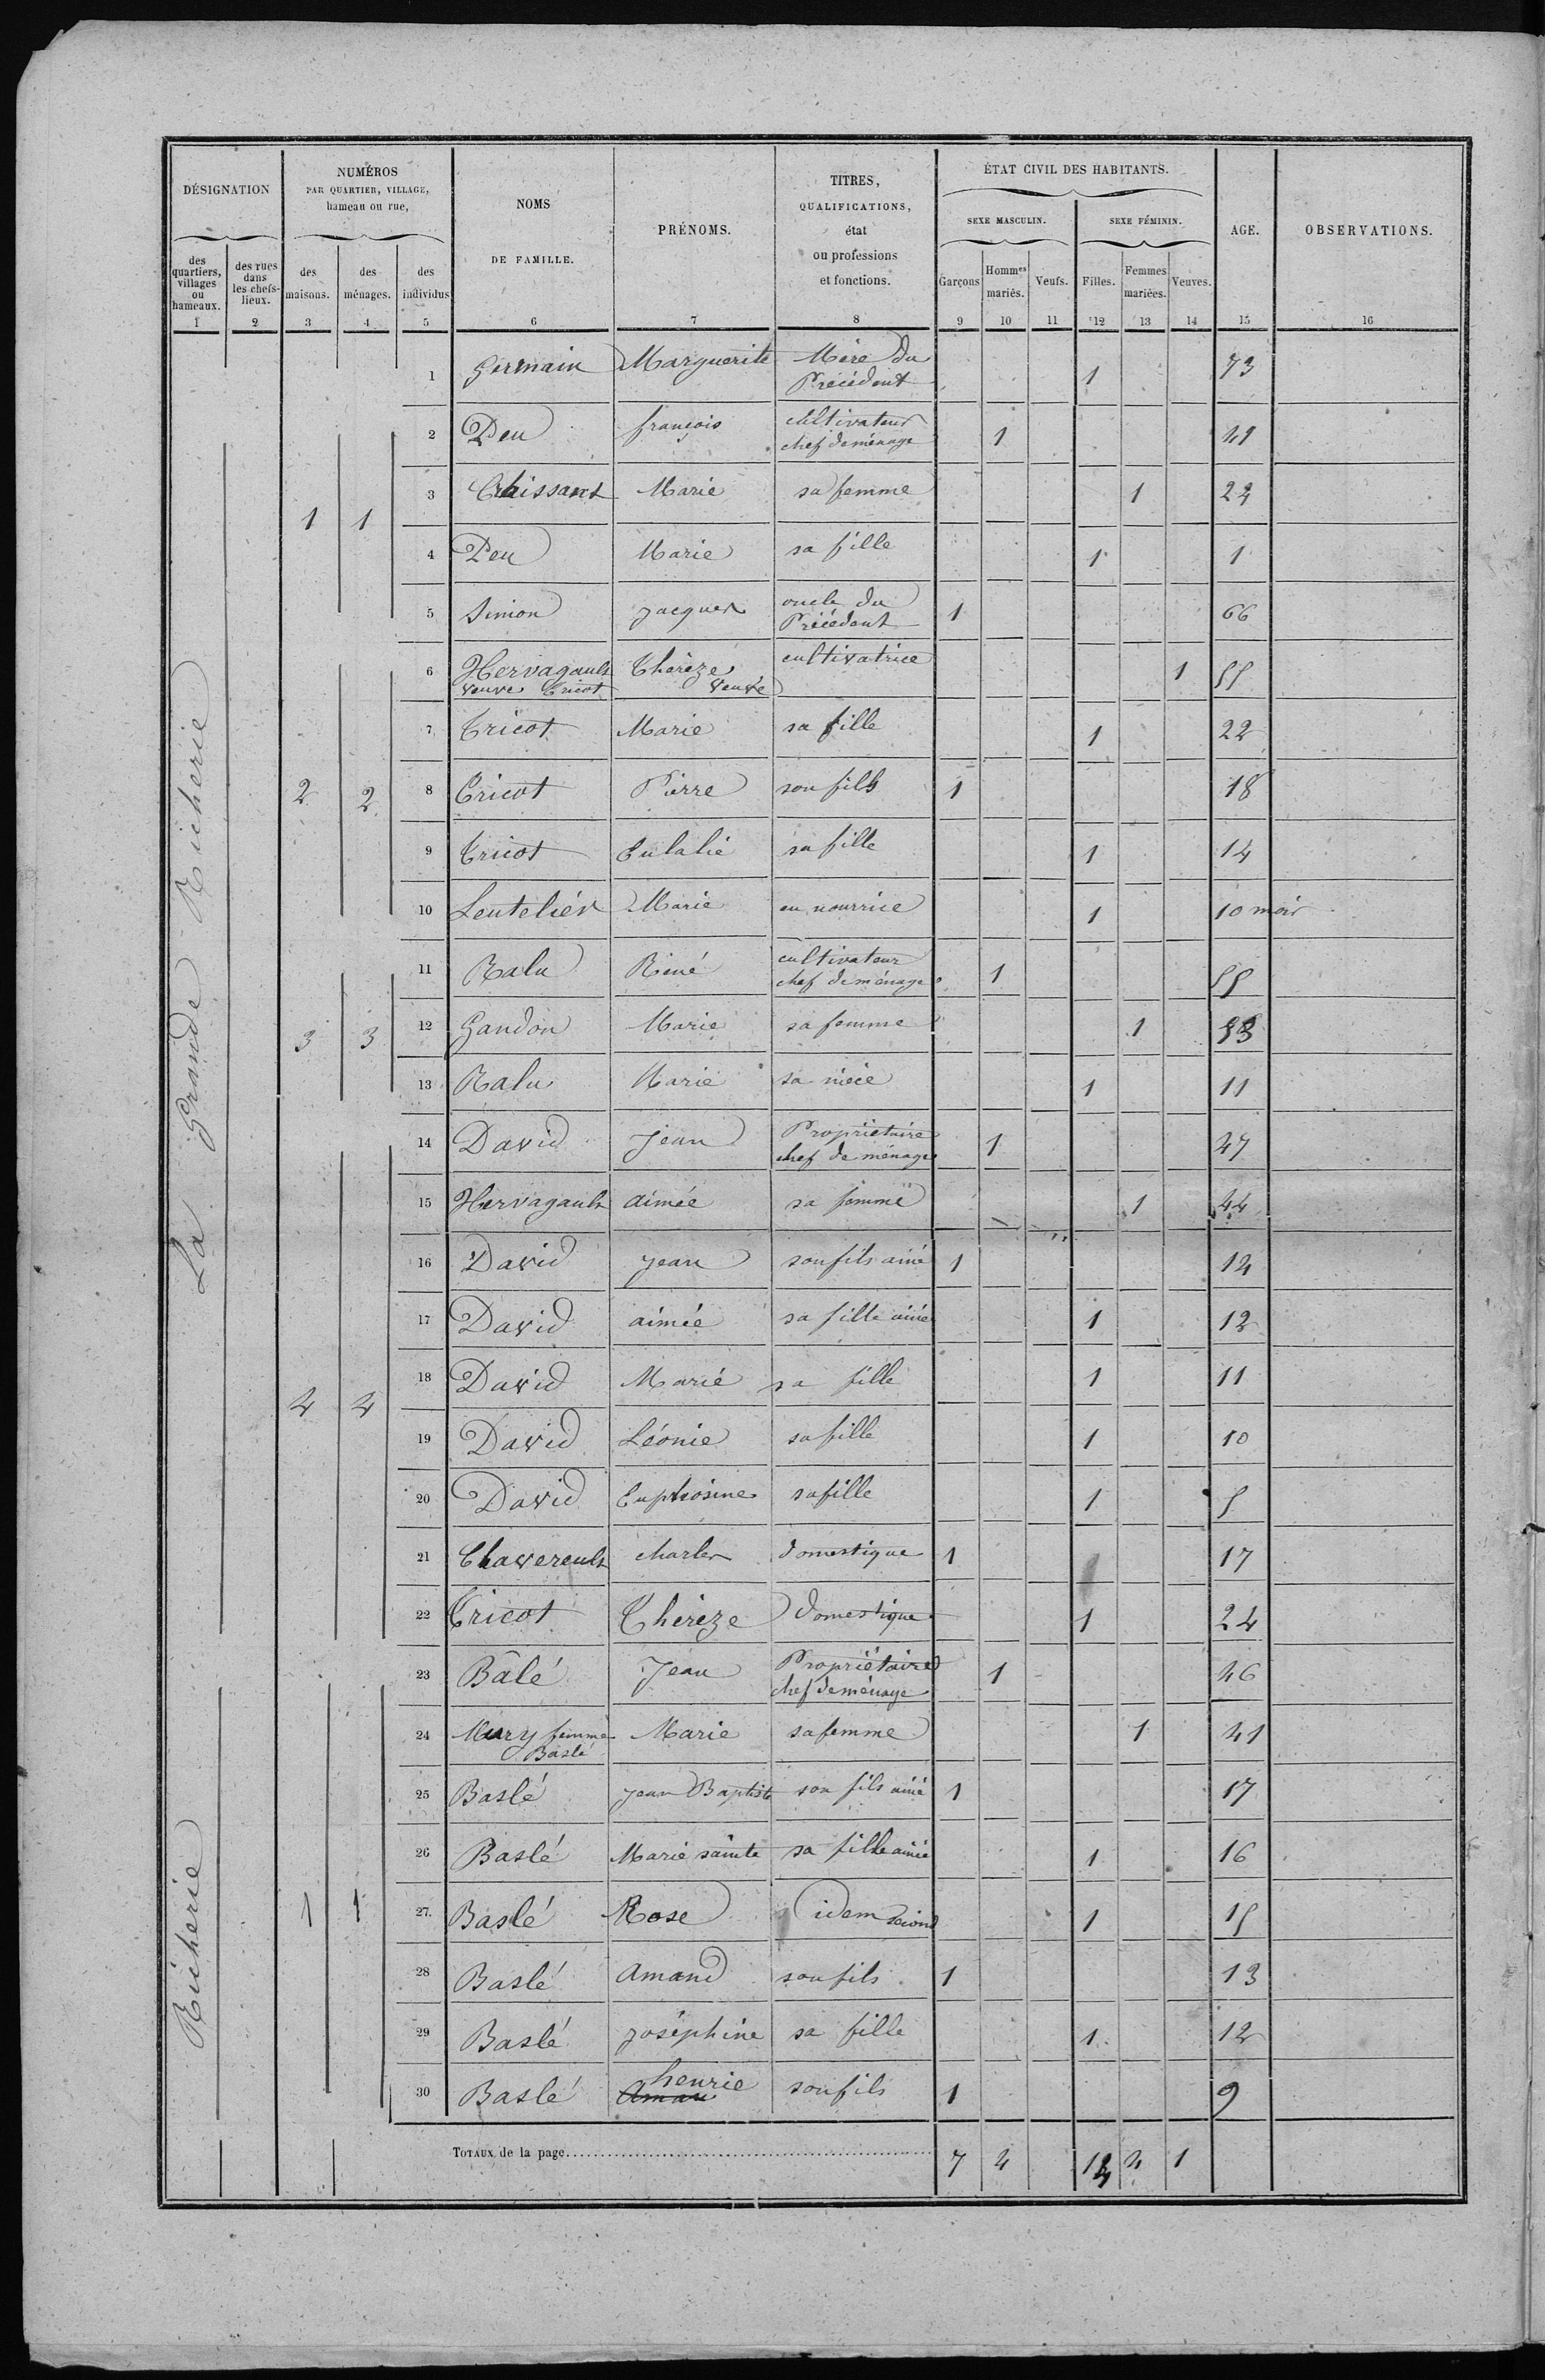 DÉSIGNATION
NUMÉROS
PAR QUARTIER, VILLAGE,
hameau ou rue,
NOMS
DE FAMILLE.
PRÉNOMS.
TITRES,
QUALIFICATIONS,
état
ou professions
et fonctions.
ÉTAT CIVIL DES HABITANTS.
SEXE MASCULIN.
SEXE FÉMININ.
AGE.
OBSERVATIONS.
des quartiers, villages ou hameaux.
des rues dans les chefs-lieux.
des maisons.
des ménages.
des individus
Garçons
Hommes mariés.
Veufs.
Filles.
Femmes mariées.
Veuves.
1 2 3 4 5 6 7 8 9 10 11 12 13 14 15 16
La Grande Richerie
1 Germain Marguerite Mère du Précédent 1 73
2 Peu françois cultivateur chef de ménage 1 41
1 1
3 Marie sa femme 1 22
4 Peu Marie sa fille 1 1
5 Simon Jacques oncle du Précédent 1 66
6 Hervagault veuve Tricot Thérèze veuve cultivatrice 1 55
7 Tricot Marie sa fille 1 22
2 2
8 Tricot Pierre son fils 1 18
9 Tricot Eulalie sa fille 1 14
10 Lenteliés Marie en nourrice 1 10 mois
11 Ralu Réné cultivateur chef de ménage 1 55
3 3
12 Gandon Marie sa femme 1 53
13 Ralu Marie sa nièce 1 11
14 David Jean Propriétaire chef de ménage 1 47
15 Hervagault aimée sa femme 1 44
16 David Jean son fils ainé 1 14
17 David aimée sa fille ainé 1 12
4 4
18 David Marie sa fille 1 11
19 David Léonie sa fille 1 10
20 David Euphrosine sa fille 1 5
21 Chavereult charles domestique 1 17
22 Tricot Thérèze domestique 1 24
Richerie
23 Bâlé Jean Propriétaire chef de ménage 1 46
24 Mury femme Baslé Marie sa femme 1 41
25 Baslé Jean Baptiste son fils ainé 1 17
26 Baslé Marie sainte sa fille ainée 1 16
1 1
27. Baslé Rose idem second 1 15
28 Baslé Amand son fils 1 13
29 Baslé Joséphine sa fille 1 12
30 Baslé Aman henrie son fils 1 9
TOTAUX de la page 7 4 14 4 1